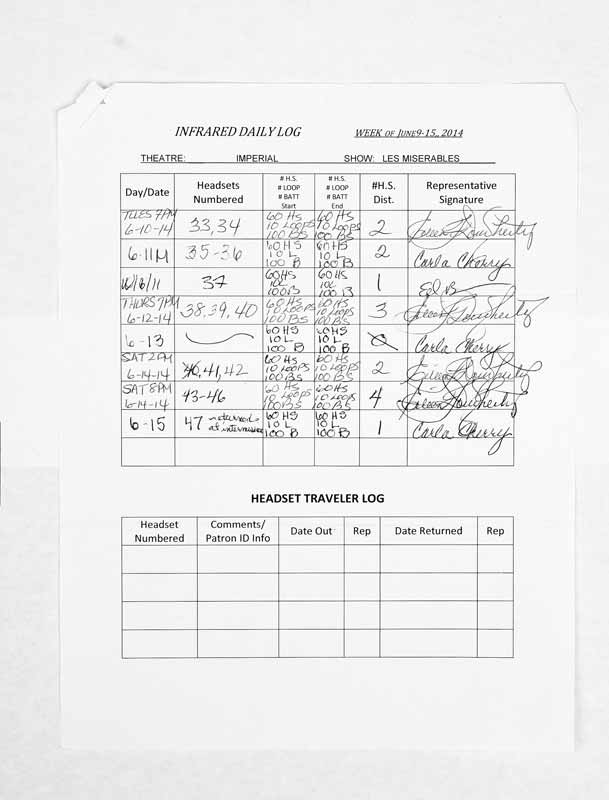 INFRARED DAILY LOG WEEK OF JUNE9-15,, 2014
THEATRE: IMPERIAL SHOW: LES MISERABLES
Day/Date Headsets Numbered # H.S. # LOOP # BATT Start # H.S. # LOOP # BATT End #H.S. Dist. Representative Signature
TUES 7PM 6-10-14 33,34 60 HS 10 LOOPS 100 BS 60 HS 10 LOOPS 100 BS 2 Eileen Dougherty
6-11M 35-36 60 HS 10 L 100 B 60 HS 10 L 100 B 2 Carla Cherry
W/6/11 37 60 HS 10L 100 B 60 HS 10L 100 B 1 Ed B
THURS 7PM 6-12-14 38,39,40 60 HS 10 LOOPS 100 BS 60 HS 10 Loops 100 BS 3 Eileen Dougherty
6-13 60 HS 10 L 100 B 60 HS 10 L 100 B 0 Carla Cherry
SAT 2PM 6-14-14 41,42 60 HS 10 LOOPS 100 BS 60 HS 10 LOOPS 100 BS 2 Eileen Dougherty
SAT 8PM 6-14-14 43-46 60 HS 10 LOOPS 100 BS 60 HS 10 LOOPS 100 BS 4 Eileen Dougherty
6-15 47 returned at intermission 60 HS 10 L 100 B 60 HS 10 L 100 B 1 Carla Cherry
HEADSET TRAVELER LOG
Headset Numbered Comments/ Patron ID Info Date Out Rep Date Returned Rep